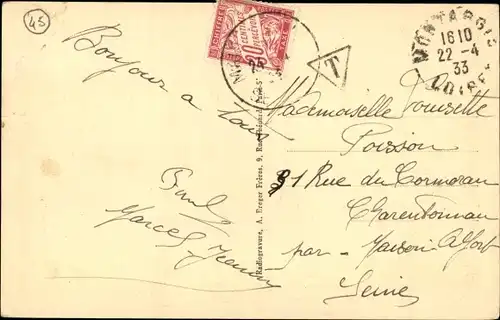 45
Bonjour a tous
Paul
Marcel Jeanne
Radiogravure, A. Breger Frères, 9, Rue
CHIFFRE TAXE
30
CENTIMES
A PERCEVOIR
T
MONTARGIS
16 10
22 - 4
33
LOIRET
Mademoiselle
Poisson
81 Rue du Cormoran
Charentonnau
par - Maison Alfort
Seine